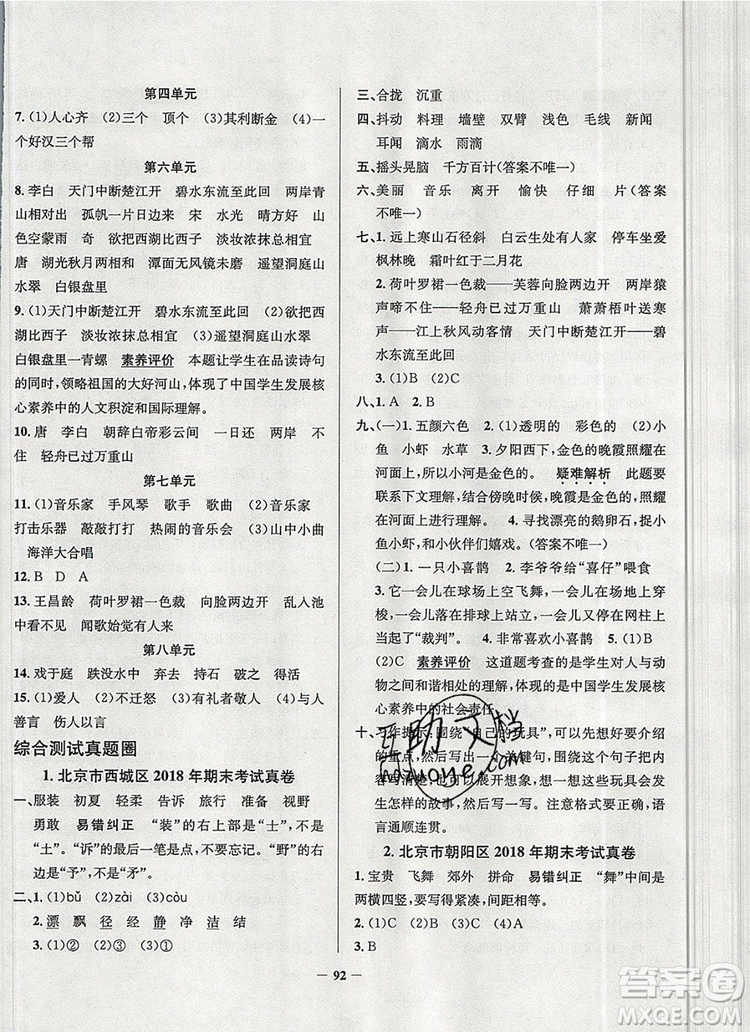 第四单元
7. (1)人心齐 (2)三个 顶个 (3)其利断金 (4)一
个好汉三个帮
第六单元
8. 李白 天门中断楚江开 碧水东流至此回 两岸青
山相对出 孤帆一片日边来 宋 水光 晴方好 山
色空蒙雨 奇 欲把西湖比西子 淡妆浓抹总相宜
唐 湖光秋月两相和 潭面无风镜未磨 遥望洞庭山
水翠 白银盘里
9. (1)天门中断楚江开 碧水东流至此回 (2)欲把西
湖比西子 淡妆浓抹总相宜 (3)遥望洞庭山水翠
白银盘里一青螺 素养评价 本题让学生在品读诗句
的同时,领略祖国的大好河山,体现了中国学生发展核
心素养中的人文积淀和国际理解。
10. 唐 李白 朝辞白帝彩云间 一日还 两岸 不
住 轻舟已过万重山
第七单元
11. (1)音乐家 手风琴 歌手 歌曲 (2)音乐家
打击乐器 敲敲打打 热闹的音乐会 (3)山中小曲
海洋大合唱
12. B D A
13. 王昌龄 荷叶罗裙一色裁 向脸两边开 乱入池
中看不见 闻歌始觉有人来
第八单元
14. 戏于庭 跌没水中 弃去 持石 破之 得活
15. (1)爱人 (2)不迁怒 (3)有礼有仪 (4)与人
善言 伤人以言
综合测试真题圈
1. 北京市西城区 2018 年期末考试真卷
一、服装 初夏 轻柔 告诉 旅行 准备 视野
勇敢 易错纠正 “装”的右上部是“士”,不是
“土”。“诉”的最后一笔是点,不要忘记。“野”的右
半部是“予”,不是“矛”。
二、1. (1)bǔ (2)zài (3)còu
2. 漂 飘 径 经 静 净 洁 结
3. (1)② (2)③ (3)①
三、合拢 沉重
四、抖动 料理 墙壁 双臂 浅色 毛线 新闻
耳闻 滴水 雨滴
五、摇头晃脑 千方百计(答案不唯一)
六、美丽 音乐 离开 愉快 仔细 片(答案
不唯一)
七、1. 远上寒山石径斜 白云生处有人家 停车坐爱
枫林晚 霜叶红于二月花
2. 荷叶罗裙一色裁——芙蓉向脸两边开 两岸猿
声啼不住——轻舟已过万重山 萧萧梧叶送寒
声——江上秋风动客情 天门中断楚江开——碧
水东流至此回
3. (1)B (2)C
八、1. A 2. B
九、(一)1. 五颜六色 2. (1)透明的 彩色的 (2)小
鱼 小虾 水草 3. 夕阳西下,金色的晚霞照耀
在河面上,所以小河是金色的。 疑难解析 此题要
联系下文理解,傍晚的时候,晚霞是金色的,照耀
在河面上进行理解。 4. 寻找漂亮的鹅卵石,捉小
鱼小虾,和小伙伴们嬉戏。(答案不唯一)
(二)1. 一只小喜鹊 2. 李爷爷给“喜仔”喂食
3. 它一会儿在球场上空飞舞,一会儿在场地上穿
梭,一会儿在排球上站立,一会儿又停在网柱上
当起了“裁判”。 4. 非常喜欢小喜鹊
5. (1)C (2)C 素养评价 这道题考查的是学生对人与动
物之间和谐相处的理解,体现的是中国学生发展核
心素养中的社会责任。
十、习作提示:围绕“自己的玩具”,可以先想好要介绍
的重点,写出一些关键句,把要写的内容思路写
清楚,再根据要写内容展开想象,想想会发生什么
样的故事,然后写一写。注意格式要正确,语
言通顺连贯。
2. 北京市朝阳区 2018 年期末考试真卷
1. 宝贵 飞舞 郊外 拼命 易错纠正 “舞”中间是
两横四竖,要写得紧凑,间距相等。
2. (1)C (2)B (3)C (4)A
3. B
92
互助文档
hdzuome.com
答案圈
MXQE.COM